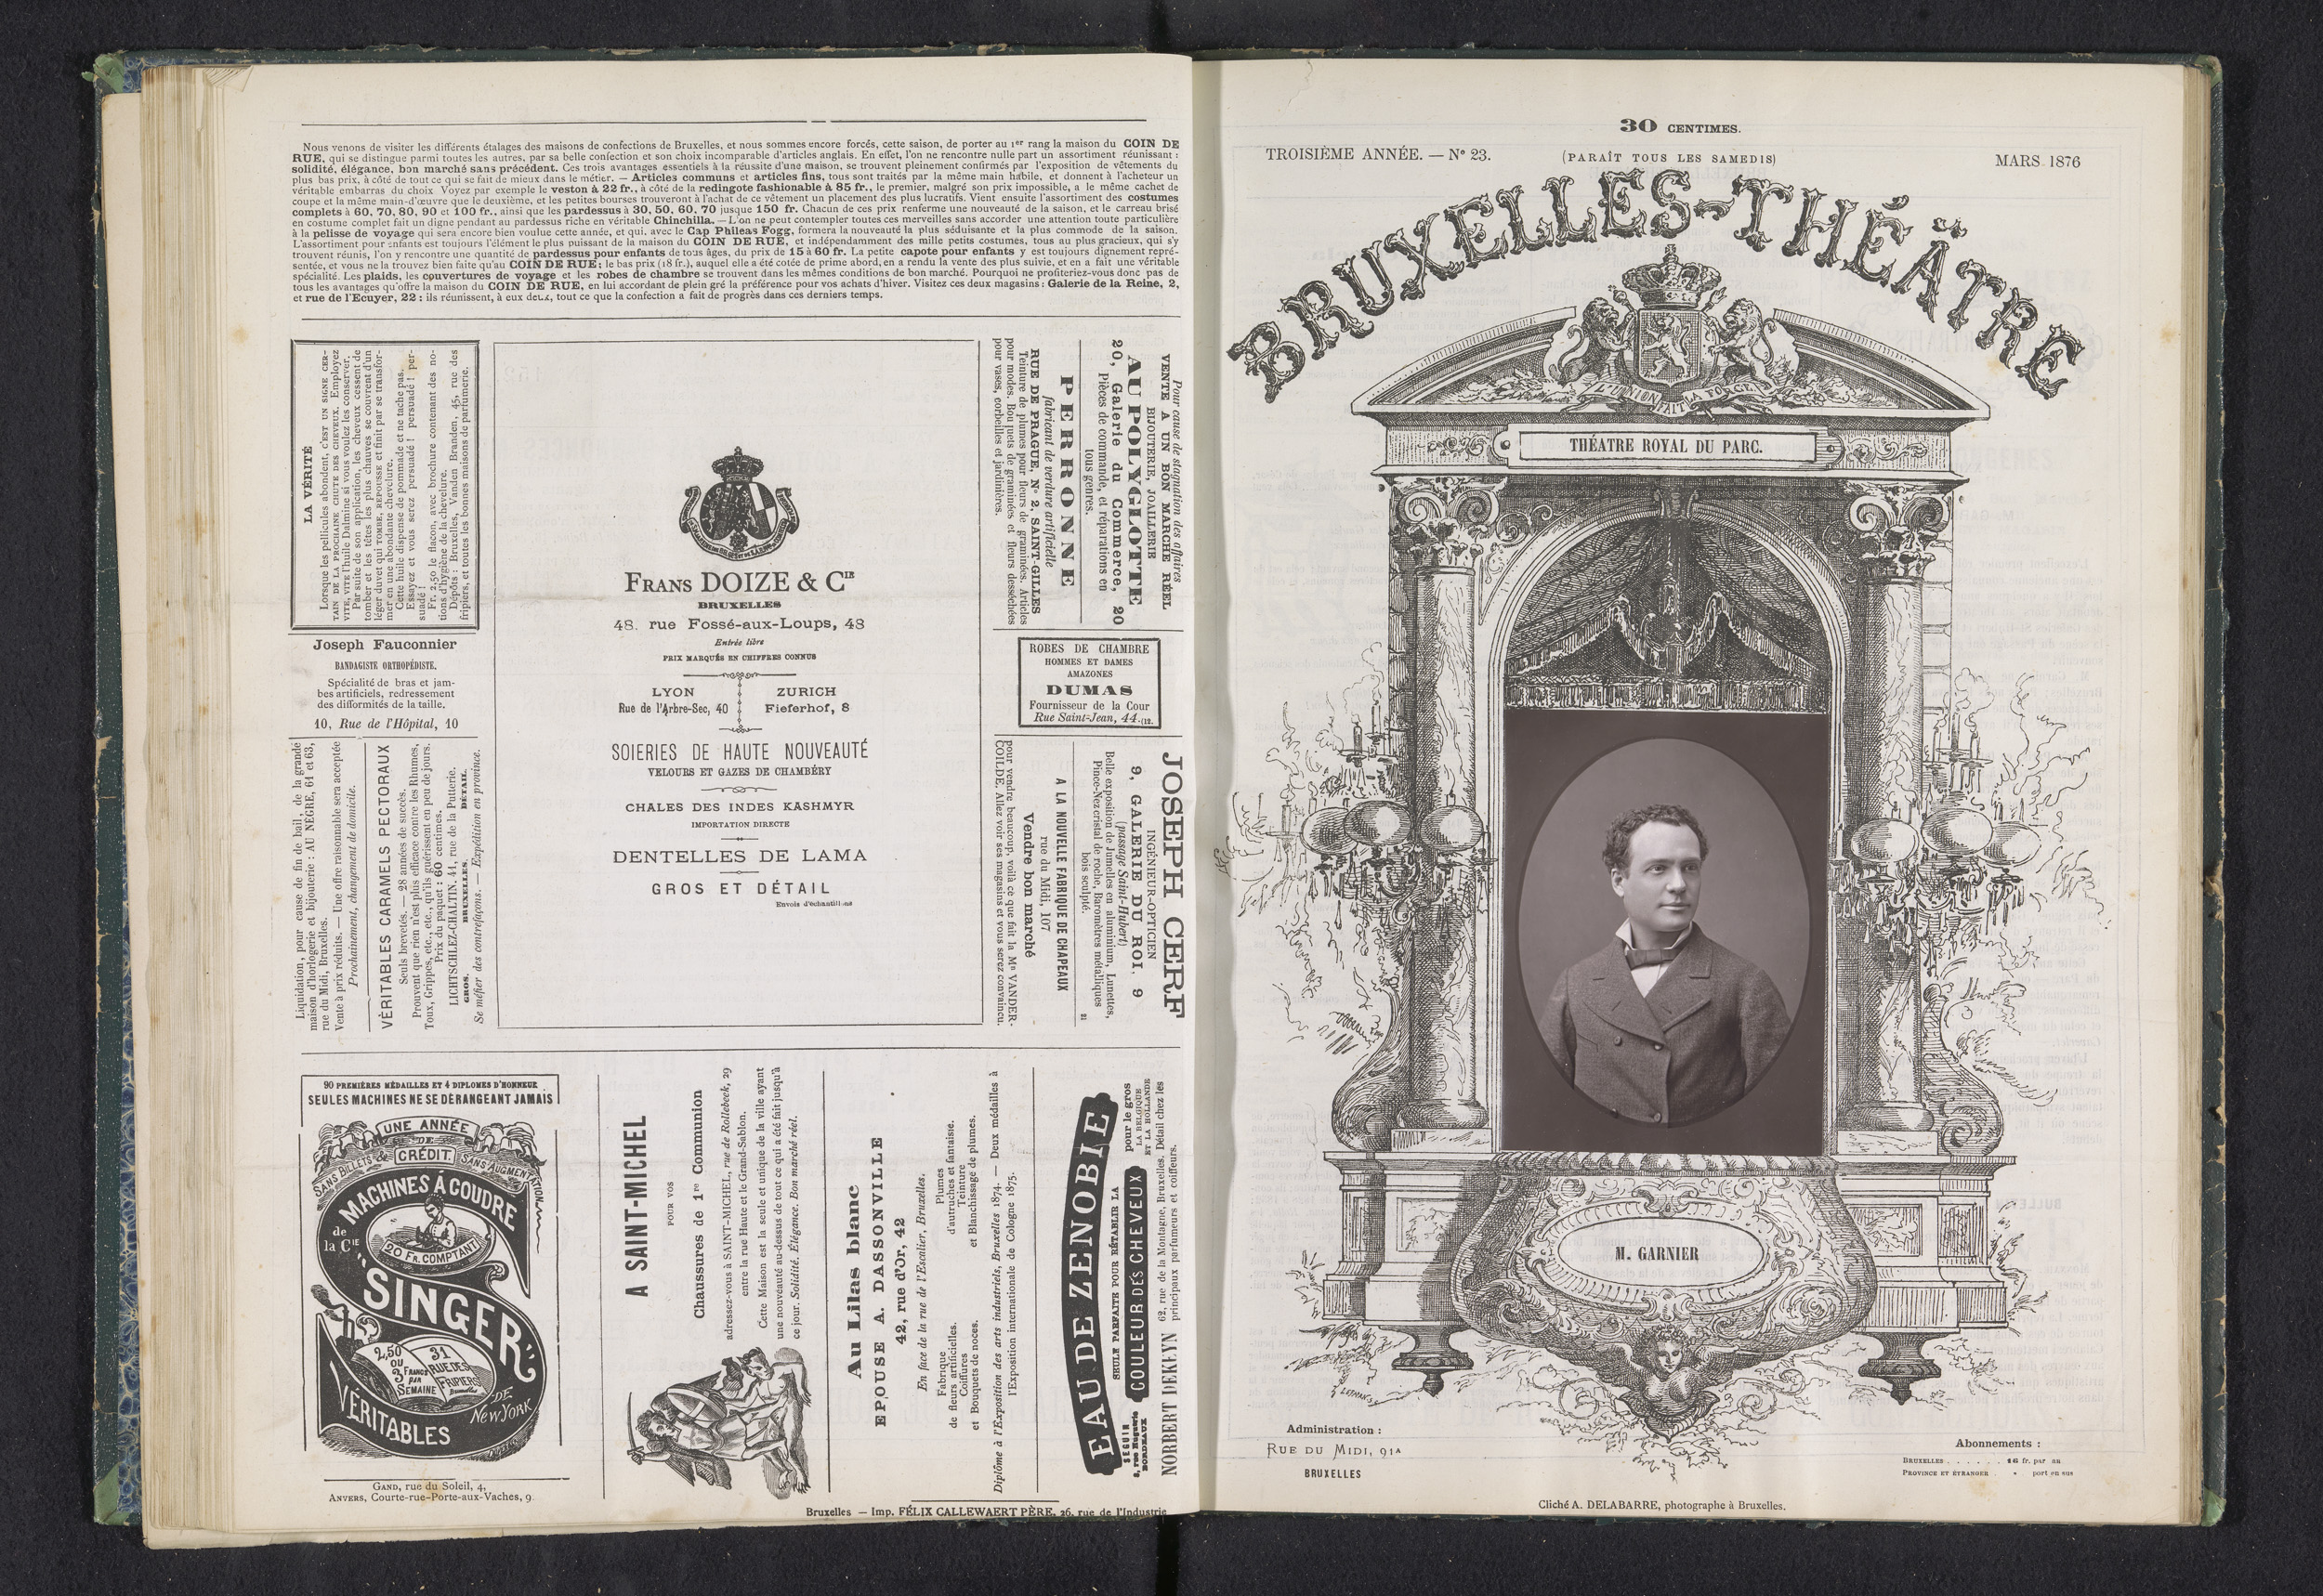 Nous venons de visiter les différents étalages des maisons de confections de Bruxelles, et nous sommes encore forcés, cette saison, de porter au 1er rang la maison du COIN DE
RUE, qui se distingue parmi toutes les autres, par sa belle confection et son choix incomparable d'articles anglais. En effet, l'on ne rencontre nulle part un assortiment réunissant :
solidité, élégance, bon marché sans précédent. Ces trois avantages essentiels à la réussite d'une maison, se trouvent pleinement confirmés par l'exposition de vêtements du
plus bas prix, à côté de tout ce qui se fait de mieux dans le métier. — Articles communs et articles fins, tous sont traités par la même main habile, et donnent à l'acheteur un
véritable embarras du choix Voyez par exemple le veston à 22 fr., à côté de la redingote fashionable à 85 fr., le premier, malgré son prix impossible, a le même cachet de
coupe et la même main-d'œuvre que le deuxième, et les petites bourses trouveront à l'achat de ce vêtement un placement des plus lucratifs. Vient ensuite l'assortiment des costumes
complets à 60, 70, 80, 90 et 100 fr., ainsi que les pardessus à 30, 50, 60, 70 jusque 150 fr. Chacun de ces prix renferme une nouveauté de la saison, et le carreau brisé
en costume complet fait un digne pendant au pardessus riche en véritable Chinchilla. — L'on ne peut contempler toutes ces merveilles sans accorder une attention toute particulière
à la pelisse de voyage qui sera encore bien voulue cette année, et qui, avec le Cap Phileas Fogg, formera la nouveauté la plus séduisante et la plus commode de la saison.
L'assortiment pour enfants est toujours l'élément le plus puissant de la maison du COIN DE RUE, et indépendamment des mille petits costumes, tous au plus gracieux, qui s'y
trouvent réunis, l'on y rencontre une quantité de pardessus pour enfants de tous âges, du prix de 15 à 60 fr. La petite capote pour enfants y est toujours dignement repré-
sentée, et vous ne la trouvez bien faite qu'au COIN DE RUE; le bas prix (18 fr.), auquel elle a été cotée de prime abord, en a rendu la vente des plus suivie, et en a fait une véritable
spécialité. Les plaids, les couvertures de voyage et les robes de chambre se trouvent dans les mêmes conditions de bon marché. Pourquoi ne profiteriez-vous donc pas de
tous les avantages qu'offre la maison du COIN DE RUE, en lui accordant de plein gré la préférence pour vos achats d'hiver. Visitez ces deux magasins : Galerie de la Reine, 2,
et rue de l'Ecuyer, 22 : ils réunissent, à eux deux, tout ce que la confection a fait de progrès dans ces derniers temps.
LA VÉRITÉ
Lorsque les pellicules abondent, C'EST UN SIGNE CER-
TAIN DE LA PROCHAINE CHUTE DES CHEVEUX. Employez
VITE, VITE l'huile Dalmine si vous voulez les conserver.
Par suite de son application, les cheveux cessent de
tomber et les têtes les plus chauves se couvrent d'un
léger duvet qui TOMBE, REPOUSSE et finit par se transfor-
mer en une abondante chevelure.
Cette huile dispense de pommade et ne tache pas.
Essayez et vous serez persuadé ! persuadé ! per-
suadé !
Fr. 2,50 le flacon, avec brochure contenant des no-
tions d'hygiène de la chevelure.
Dépôts : Bruxelles, Vanden Branden, 45, rue des
fripiers, et toutes les bonnes maisons de parfumerie.
Joseph Fauconnier
BANDAGISTE ORTHOPÉDISTE.
Spécialité de bras et jam-
bes artificiels, redressement
des difformités de la taille.
10, Rue de l'Hôpital, 10
Liquidation, pour cause de fin de bail, de la grande
maison d'horlogerie et bijouterie : AU NÈGRE, 61 et 63,
rue du Midi, Bruxelles.
Vente à prix réduits. — Une offre raisonnable sera acceptée
Prochainement, changement de domicile.
VÉRITABLES CARAMELS PECTORAUX
Seuls brevetés. — 28 années de succès.
Prouvent que rien n'est plus efficace contre les Rhumes,
Toux, Grippes, etc., etc., qu'ils guérissent en peu de jours.
Prix du paquet : 60 centimes.
LICHTSCHLEZ-CHALTIN. 41, rue de la Putterie.
GROS. BRUXELLES. DÉTAIL.
Se méfier des contrefaçons. — Expédition en province.
FRANS DOIZE & CIE
BRUXELLES
48. rue Fossé-aux-Loups, 48
Entrée libre
PRIX MARQUÉS EN CHIFFRES CONNUS
LYON
Rue de l'Arbre-Sec, 40
ZURICH
Fieferhof, 8
SOIERIES DE HAUTE NOUVEAUTÉ
VELOURS ET GAZES DE CHAMBÉRY
CHALES DES INDES KASHMYR
IMPORTATION DIRECTE
DENTELLES DE LAMA
GROS ET DÉTAIL
Envois d'échantillons
Pour cause de stagnation des affaires
VENTE A UN BON MARCHÉ RÉEL
BIJOUTERIE, JOAILLERIE
AU POLYGLOTTE
20, Galerie du Commerce, 20
Pièces de commande, et réparations en
tous genres.
PERRONNE
fabricant de verdure artificielle
RUE DE PRAGUE, No 2, SAINT-GILLES
Teinture de plumes pour fleurs de graminées. Articles
pour modes. Bouquets de graminées et fleurs desséchées
pour vases, corbeilles et jardinières.
ROBES DE CHAMBRE
HOMMES ET DAMES
AMAZONES
DUMAS
Fournisseur de la Cour
Rue Saint-Jean, 44. (12.
JOSEPH CERF
INGÉNIEUR-OPTICIEN
9, GALERIE DU ROI, 9
(passage Saint-Hubert)
Belle exposition de Jumelles en aluminium, Lunettes,
Pince-Nez cristal de roche, Baromètres métalliques
bois sculpté. 21
A LA NOUVELLE FABRIQUE DE CHAPEAUX
rue du Midi, 107
Vendre bon marché
pour vendre beaucoup, voilà ce que fait la Mn VANDER-
COILDE. Allez voir ses magasins et vous serez convaincu.
90 PREMIÈRES MÉDAILLES ET 4 DIPLOMES D'HONNEUR
SEULES MACHINES NE SE DÉRANGEANT JAMAIS
UNE ANNÉE
DE
CRÉDIT
SANS BILLETS & SANS AUGMENTATION
MACHINES À COUDRE
de
la CIE
20 FR. COMPTANT
"SINGER"
2,50
OU
3 FRANCS
PAR
SEMAINE
31
RUE DES
FRIPIERS
Bruxelles
DE
NEW YORK
VÉRITABLES
GAND, rue du Soleil, 4,
ANVERS, Courte-rue-Porte-aux-Vaches, 9.
A SAINT-MICHEL
POUR VOS
Chaussures de 1re Communion
adressez-vous à SAINT-MICHEL, rue de Rollebeek, 29
entre la rue Haute et le Grand-Sablon.
Cette Maison est la seule et unique de la ville ayant
une nouveauté au-dessus de tout ce qui a été fait jusqu'à
ce jour. Solidité. Élégance. Bon marché réel.
Au Lilas blanc
EPOUSE A. DASSONVILLE
42, rue d'Or, 42
En face de la rue de l'Escalier, Bruxelles.
Fabrique
de fleurs artificielles.
Coiffures
et Bouquets de noces.
Plumes
d'autruches et fantaisie.
Teinture
et Blanchissage de plumes.
Diplôme à l'Exposition des arts industriels, Bruxelles 1874. — Deux médailles à
l'Exposition internationale de Cologne 1875.
EAU DE ZENOBIE
SEULE PARFAITE POUR RÉTABLIR LA
COULEUR DES CHEVEUX
SEGUIN
3, rue Huguerie
BORDEAUX
pour le gros
LA BELGIQUE
ET LA HOLLANDE
NORBERT DEKEYN 62, rue de la Montagne, Bruxelles. Détail chez les
principaux parfumeurs et coiffeurs.
Bruxelles — Imp. FÉLIX CALLEWAERT PÈRE, 26, rue de l'Industrie
30 CENTIMES.
TROISIÈME ANNÉE. — No 23.
(PARAÎT TOUS LES SAMEDIS)
MARS 1876
BRUXELLES-THÉÂTRE
L'UNION FAIT LA FORCE
THÉATRE ROYAL DU PARC.
M. GARNIER
Administration :
RUE DU MIDI, 91A
BRUXELLES
Abonnements :
BRUXELLES . . . . . 16 fr. par an
PROVINCE ET ÉTRANGER . " port en sus
Cliché A. DELABARRE, photographe à Bruxelles.